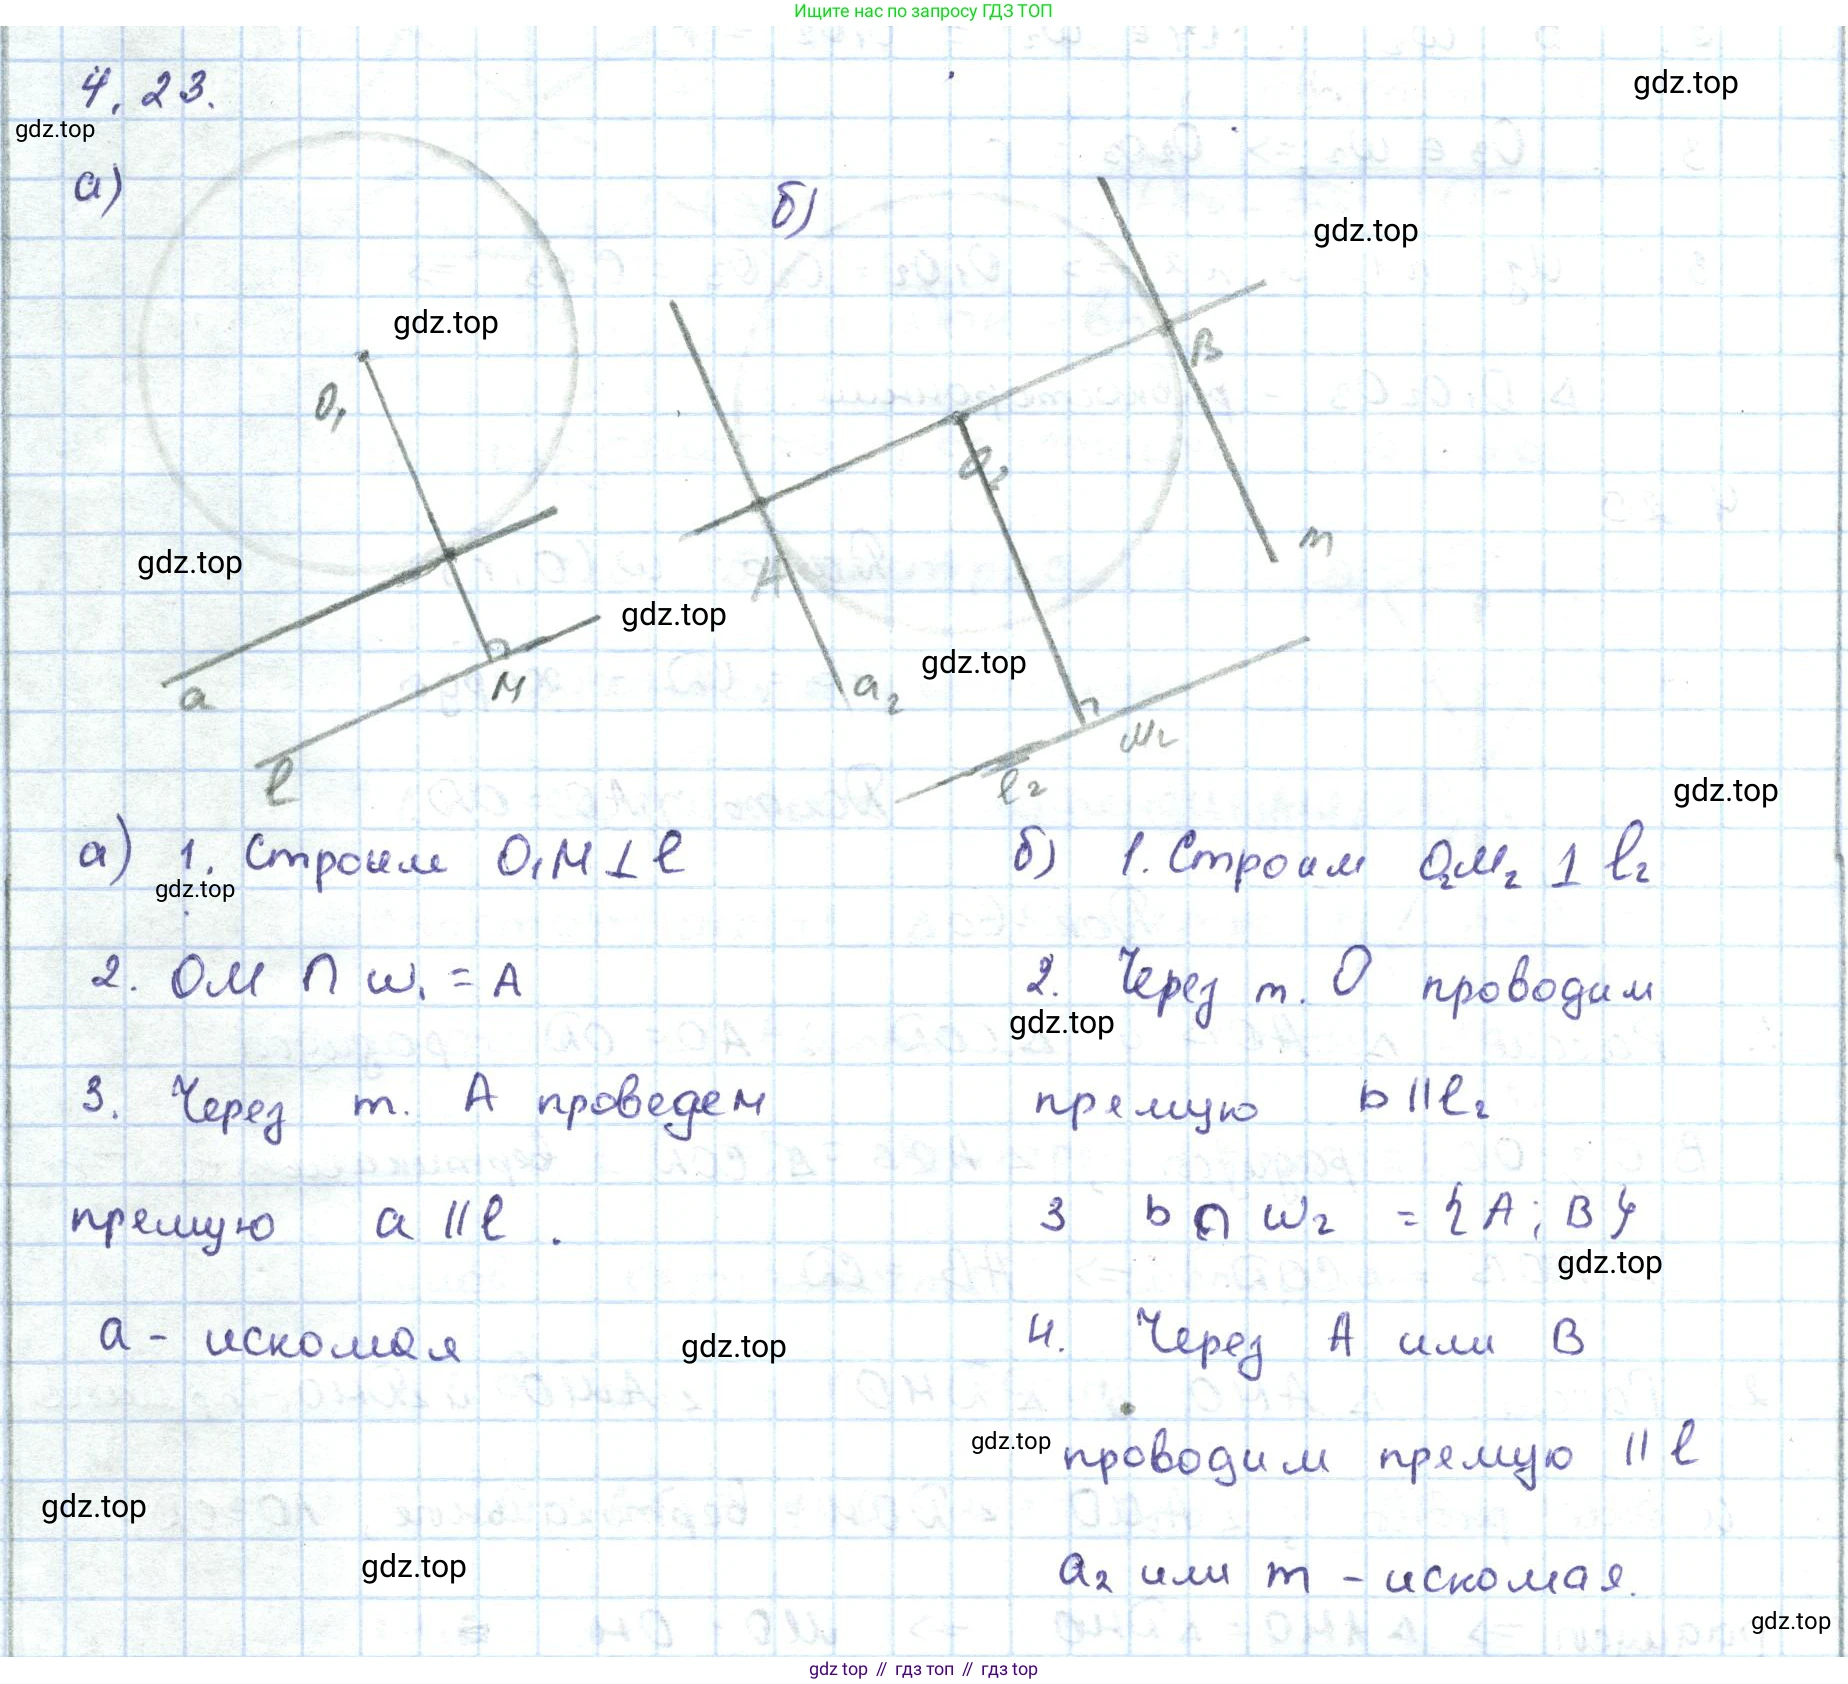 Ищите нас по запросу ГДЗ ТОП
4.23.
gdz.top
gdz.top
а)
б)
gdz.top
gdz.top
O₁
B
O₂
m
gdz.top
A
gdz.top
gdz.top
a
M
a₂
M₂
l
l₂
gdz.top
а) 1. Строим O₁M ⊥ l
gdz.top
2. OM ∩ w₁ = A
3. Через т. A проведем
прямую a || l .
a - искомая
gdz.top
gdz.top
gdz.top
б) 1. Строим O₂M₂ ⊥ l₂
2. Через т. O проводим
gdz.top
прямую b || l₂
3 b ∩ w₂ = {A; B}
gdz.top
4. Через A или B
gdz.top
проводим прямую || l
a₂ или m - искомая.
gdz.top
gdz top // гдз топ // гдз top